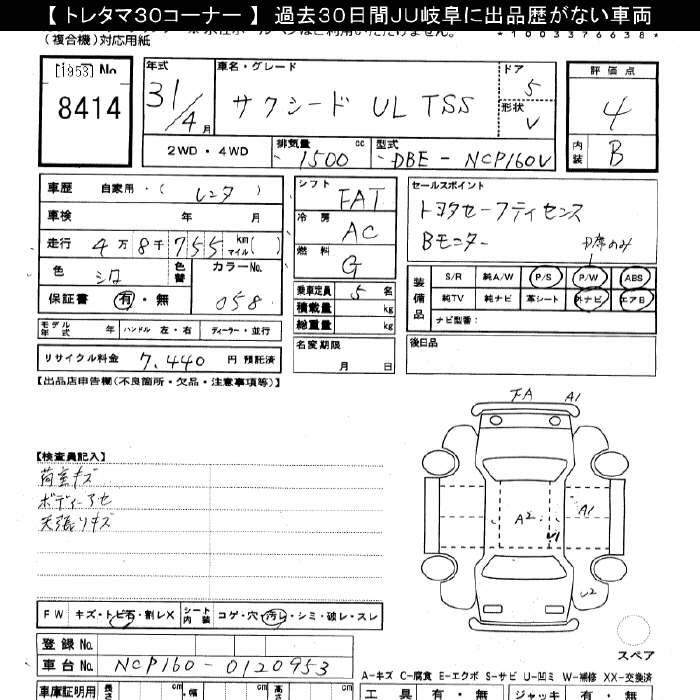 【 トレタマ30コーナー 】 過去30日間JU岐阜に出品歴がない車両
(複合機)対応用紙
*1003376638*
[1953] No
8414
年式
31/4月
車名・グレード
サクシード UL TSS
ドア
5
形状
V
評価点
4
内装
B
2WD・4WD
排気量
1500 cc
型式
DBE-NCP160V
車歴 自家用・( レンタ )
車検 年 月
走行 4万8千755 km マイル( )
色 シロ
色替
カラーNo.
058
保証書 有・無
シフト
FAT
冷房
AC
燃料
G
乗車定員 5 名
積載量 kg
総重量 kg
名変期限
月 日
セールスポイント
トヨタセーフティセンス
Bモニター
P席のみ
装備品
S/R 純A/W P/S P/W ABS
純TV 純ナビ 革シート 外ナビ エアB
ナビ型番:
後日品
モデル年式 年 ハンドル 左・右 ディーラー・並行
リサイクル料金 7,440 円 預託済
【出品店申告欄(不良箇所・欠品・注意事項等)】
【検査員記入】
荷室キズ
ボディーアセ
天張りキズ
FA A1
A2 A1
U1
U2
スペア
FW キズ・トビ石・割レX シート内装 コゲ・穴・汚レ・シミ・破レ・スレ
登録No.
車台No. NCP160-0120953
A-キズ C-腐食 E-エクボ S-サビ U-凹ミ W-補修 XX-交換済
車庫証明用 長さ cm ・幅 cm 高さ cm
工具 有・無 ジャッキ 有・無